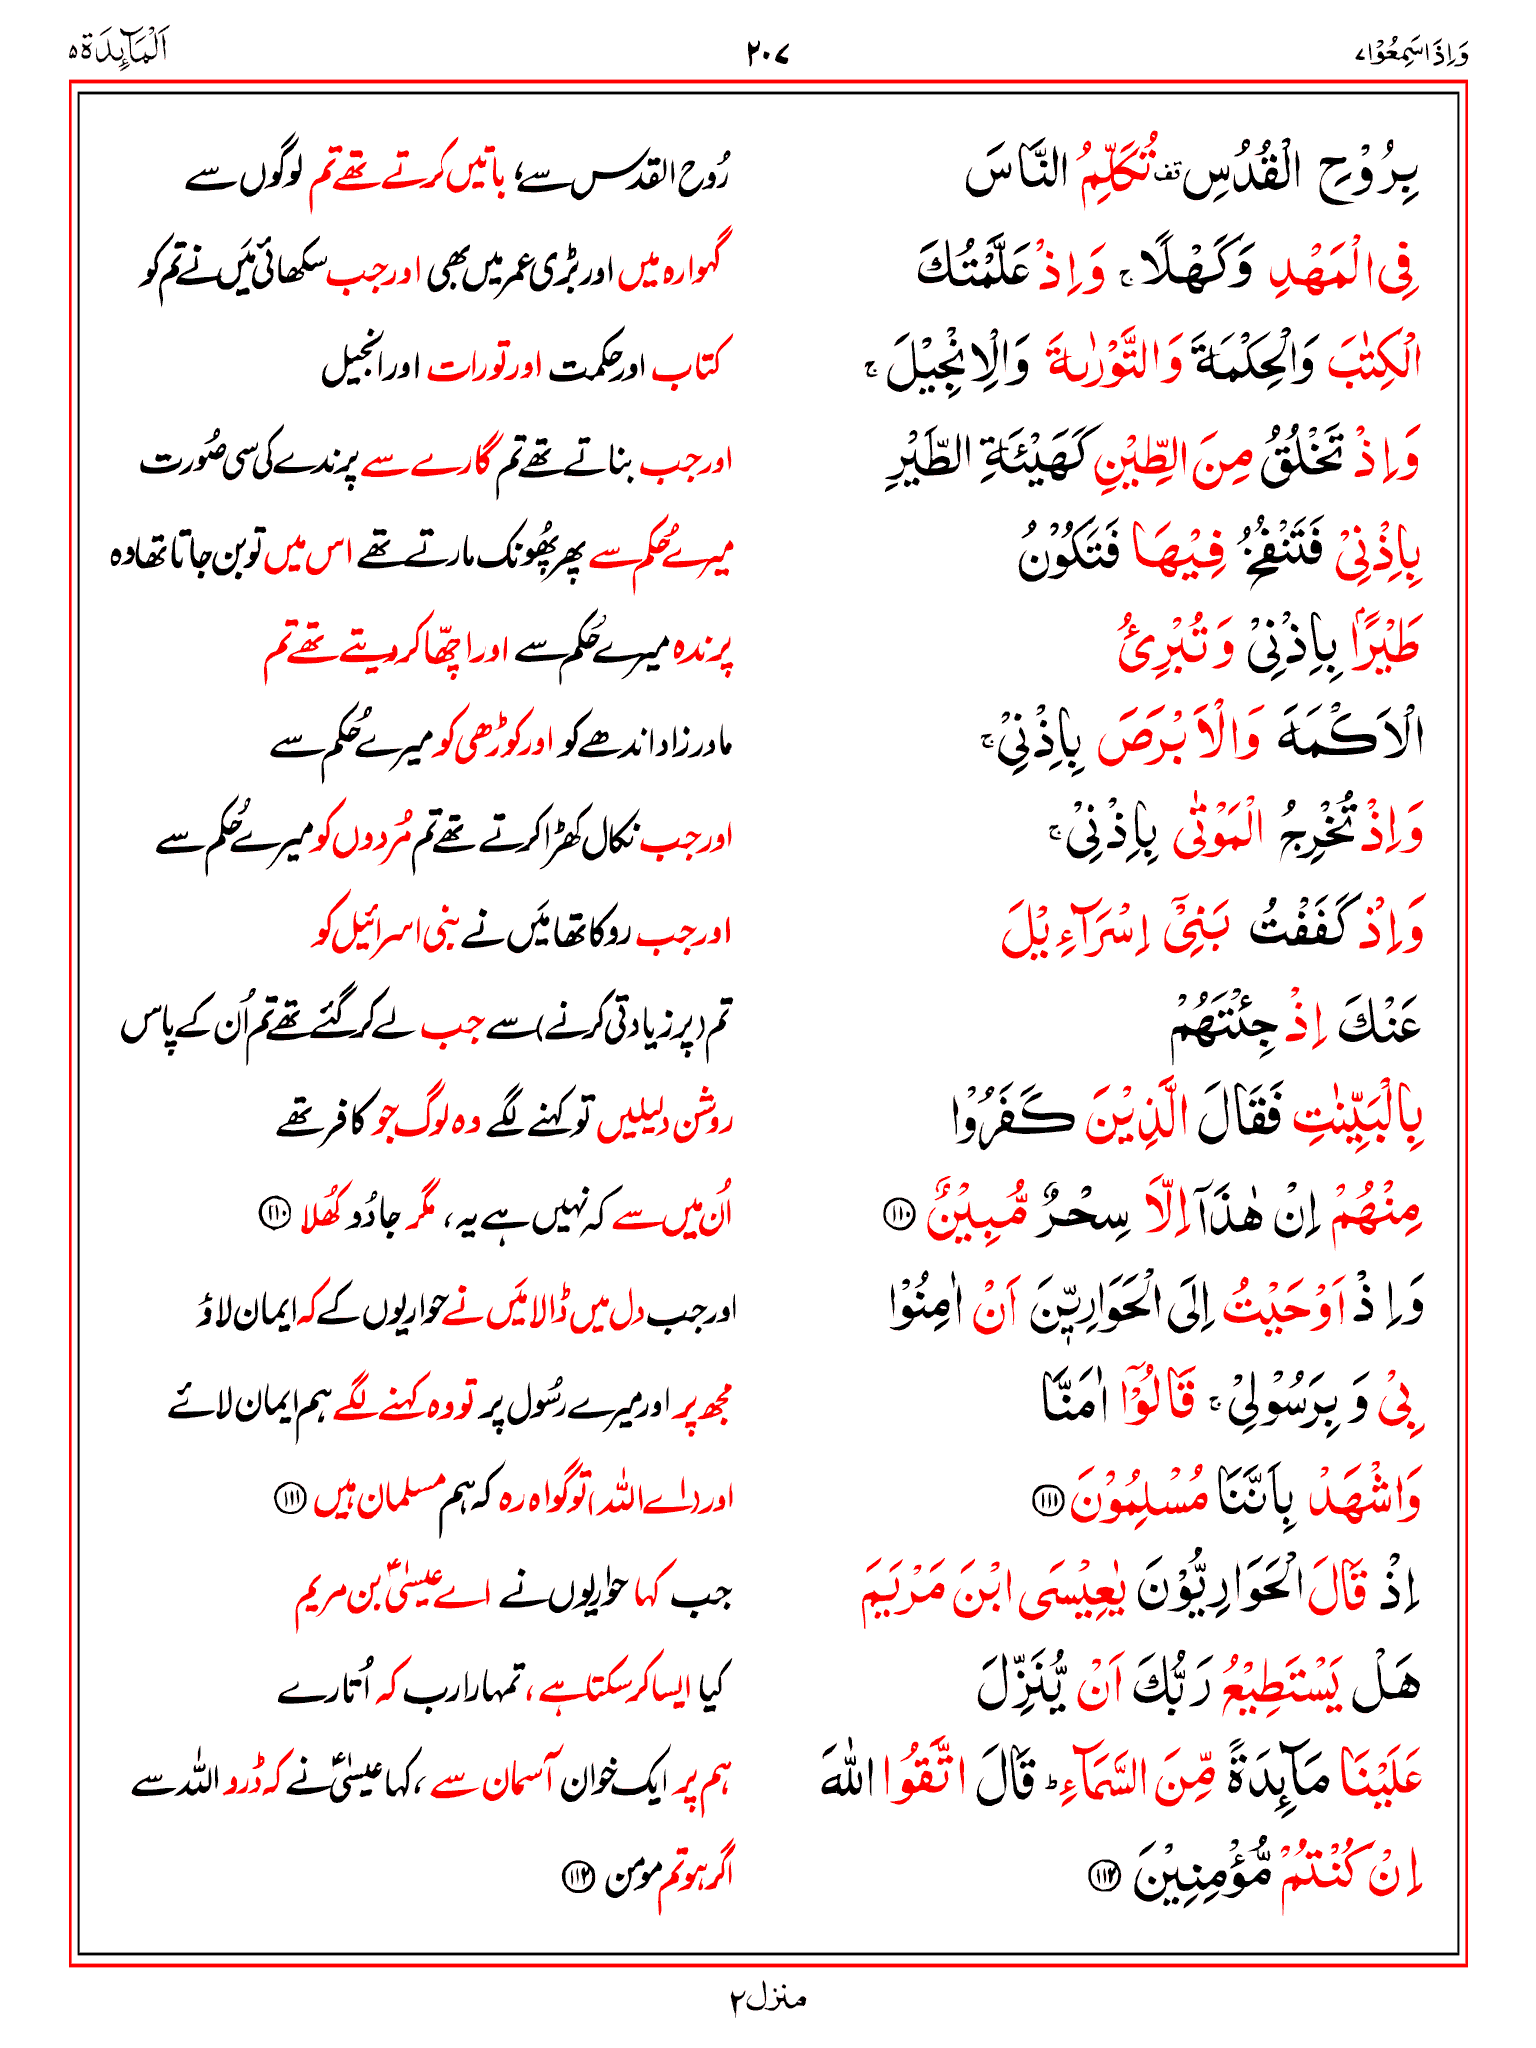 وَاِذَاسَمِعُوْا۷ ۲۰۷ اَلْمَآىِٕدَة۵
بِرُوْحِ الْقُدُسِ قف تُكَلِّمُ النَّاسَ رُوح القدس سے، باتیں کرتے تھے تم لوگوں سے
فِی الْمَهْدِ وَكَهْلًا ۚ وَاِذْ عَلَّمْتُكَ گہوارہ میں اور بڑی عمر میں بھی اور جب سکھائی مَیں نے تم کو
الْكِتٰبَ وَالْحِكْمَةَ وَالتَّوْرٰىةَ وَالْاِنْجِیْلَ ۚ کتاب اور حکمت اور تورات اور انجیل
وَاِذْ تَخْلُقُ مِنَ الطِّیْنِ كَهَیْـَٔةِ الطَّیْرِ اور جب بناتے تھے تم گارے سے پرندے کی سی صُورت
بِاِذْنِیْ فَتَنْفُخُ فِیْهَا فَتَكُوْنُ میرے حُکم سے پھر پھُونک مارتے تھے اس میں تو بن جاتا تھا وہ
طَیْرًۢا بِاِذْنِیْ وَتُبْرِئُ پرندہ میرے حُکم سے اور اچّھا کر دیتے تھے تم
الْاَكْمَهَ وَالْاَبْرَصَ بِاِذْنِیْ ۚ مادر زاد اندھے کو اور کوڑھی کو میرے حُکم سے
وَاِذْ تُخْرِجُ الْمَوْتٰی بِاِذْنِیْ ۚ اور جب نکال کھڑا کرتے تھے تم مُردوں کو میرے حُکم سے
وَاِذْ كَفَفْتُ بَنِیْۤ اِسْرَآءِیْلَ اور جب روکا تھا مَیں نے بنی اسرائیل کو
عَنْكَ اِذْ جِئْتَهُمْ تم (پر زیادتی کرنے) سے جب لے کر گئے تھے تم اُن کے پاس
بِالْبَیِّنٰتِ فَقَالَ الَّذِیْنَ كَفَرُوْا روشن دلیلیں تو کہنے لگے وہ لوگ جو کافر تھے
مِنْهُمْ اِنْ هٰذَاۤ اِلَّا سِحْرٌ مُّبِیْنٌ ۝۱۱۰ اُن میں سے کہ نہیں ہے یہ، مگر جادُو کھُلا ۝۱۱۰
وَاِذْ اَوْحَیْتُ اِلَی الْحَوَارِیّٖنَ اَنْ اٰمِنُوْا اور جب دل میں ڈالا مَیں نے حواریوں کے کہ ایمان لاؤ
بِیْ وَبِرَسُوْلِیْ ۚ قَالُوْۤا اٰمَنَّا مجھ پر اور میرے رسُول پر تو وہ کہنے لگے ہم ایمان لائے
وَاشْهَدْ بِاَنَّنَا مُسْلِمُوْنَ ۝۱۱۱ اور (اے اللہ) تو گواہ رہ کہ ہم مسلمان ہیں ۝۱۱۱
اِذْ قَالَ الْحَوَارِیُّوْنَ یٰعِیْسَی ابْنَ مَرْیَمَ جب کہا حواریوں نے اے عیسٰیؑ بن مریم
هَلْ یَسْتَطِیْعُ رَبُّكَ اَنْ یُّنَزِّلَ کیا ایسا کر سکتا ہے، تمہارا رب کہ اُتارے
عَلَیْنَا مَآىِٕدَةً مِّنَ السَّمَآءِ ؕ قَالَ اتَّقُوا اللّٰهَ ہم پر ایک خوان آسمان سے، کہا عیسٰیؑ نے کہ ڈرو اللہ سے
اِنْ كُنْتُمْ مُّؤْمِنِیْنَ ۝۱۱۲ اگر ہو تم مومن ۝۱۱۲
منزل۲